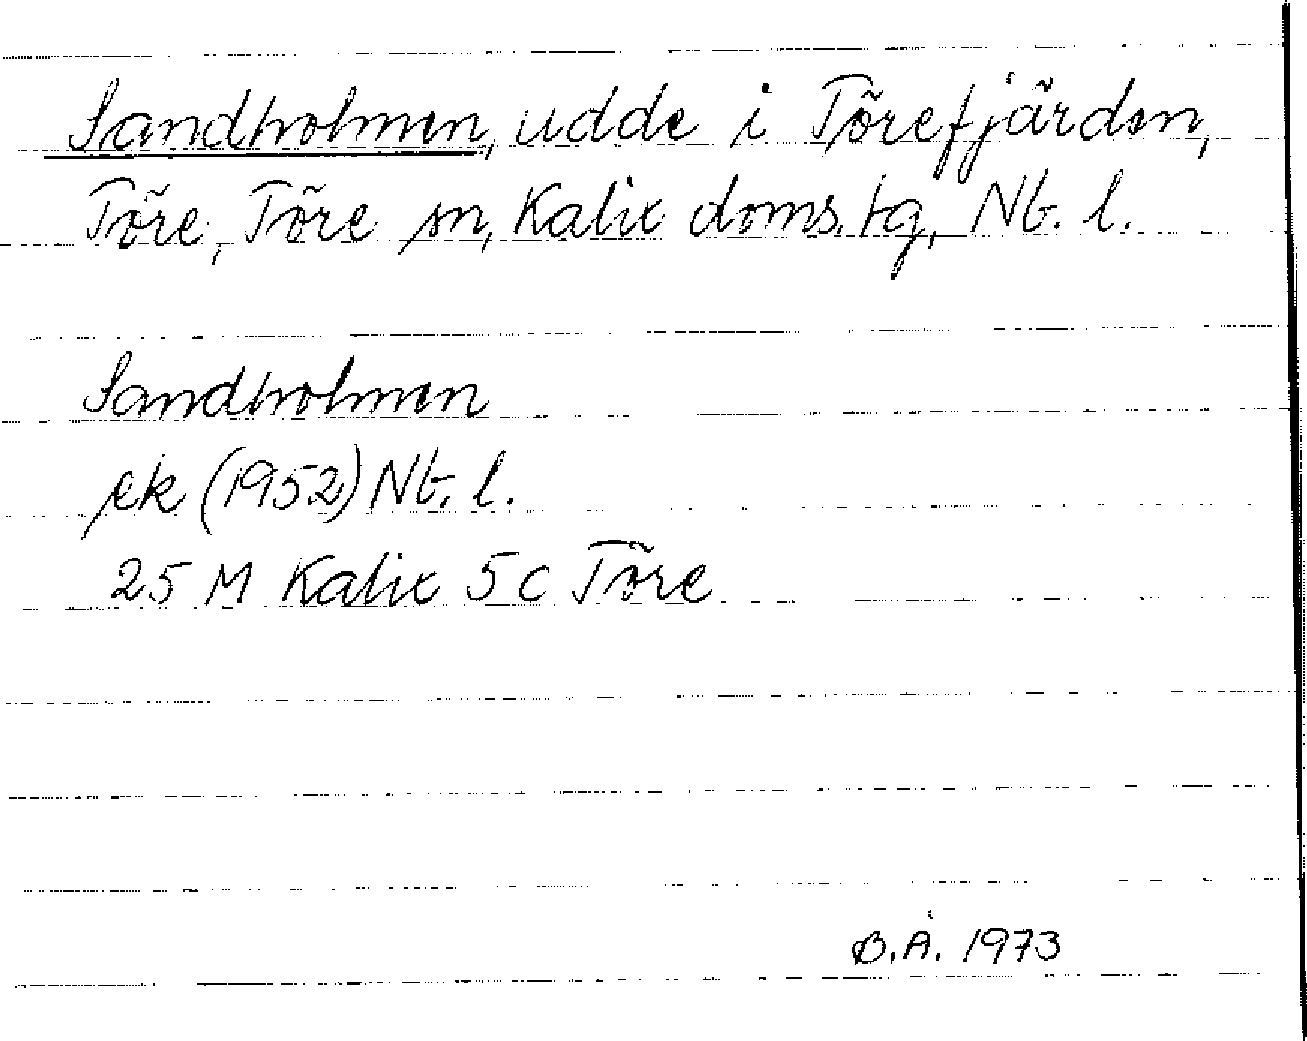 Sandholmen, udde i Törefjärden,
Töre, Töre sn, Kalix doms. tg, Nb. l.
Sandholmen
ek (1952) Nb. l.
25 M Kalix 5 c Töre
B.Å. 1973